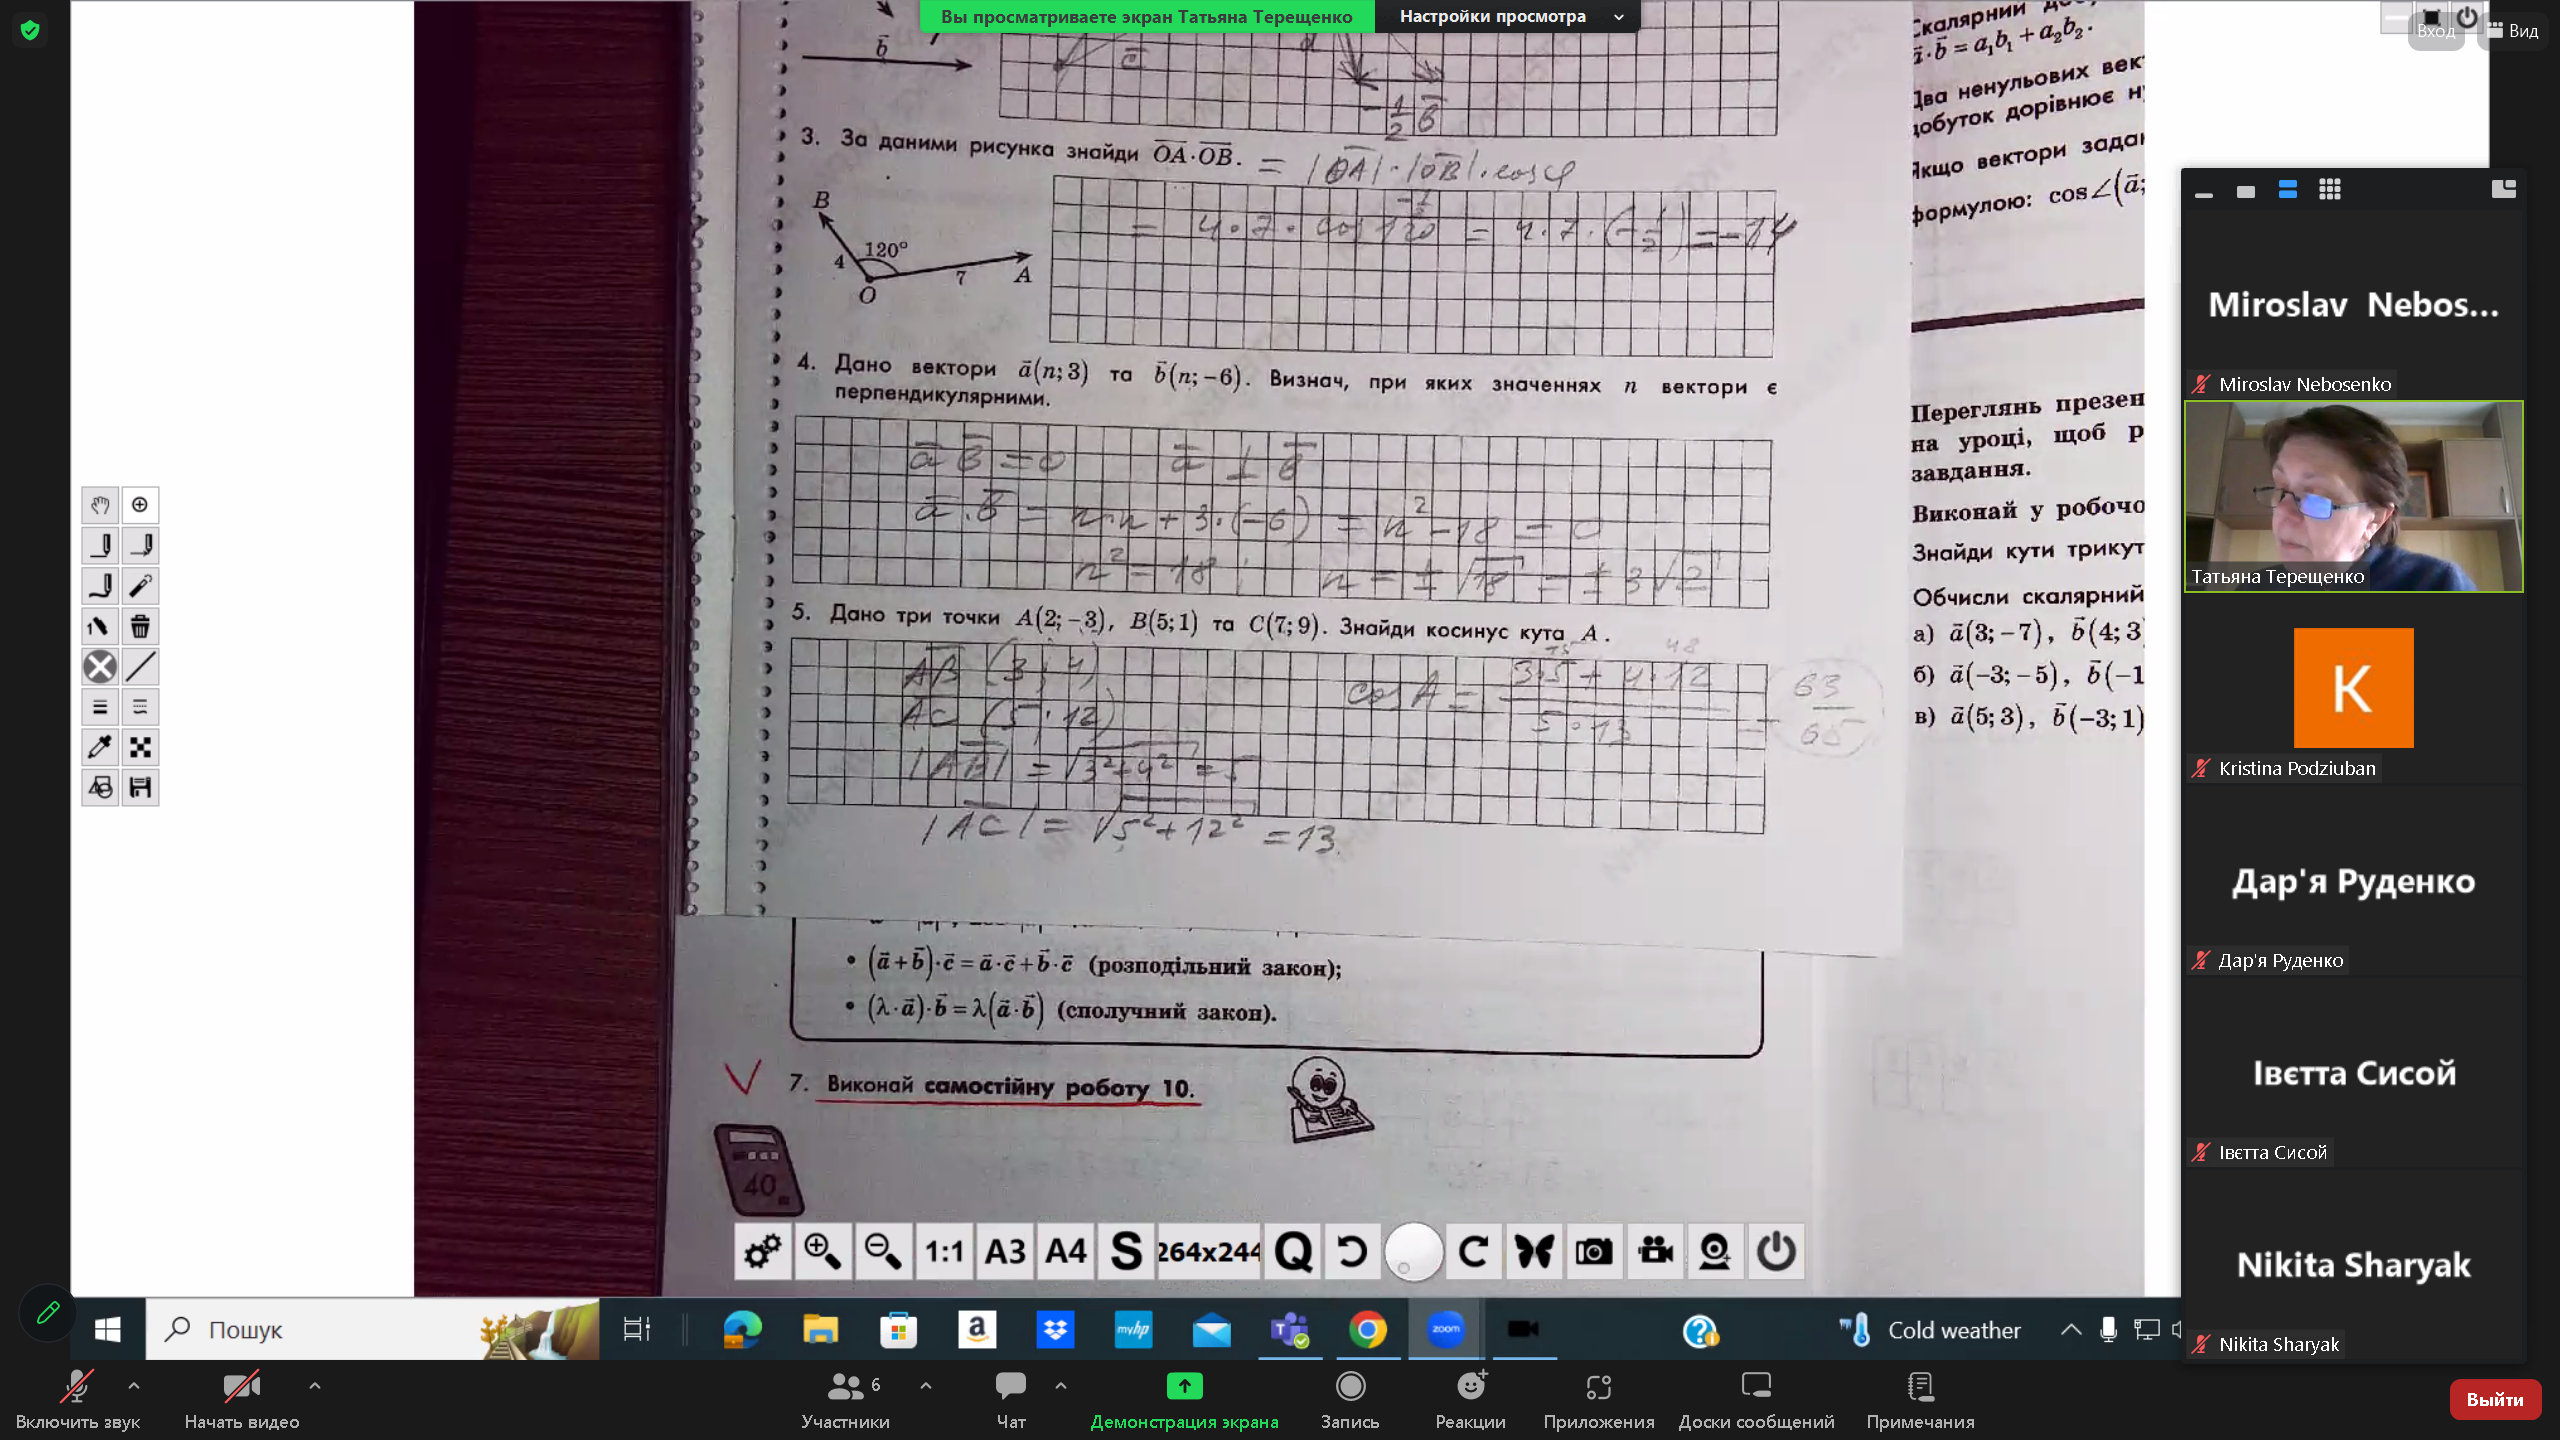 Вы просматриваете экран Татьяна Терещенко
Настройки просмотра
Вход
Вид
b̄
c̄
d
-1/2 b̄
3. За даними рисунка знайди OA·OB. = |OA|·|OB|·cosφ
B
120°
4
7
A
O
-1/2
= 4·7·cos120 = 4·7·(-1/2) = -14
4. Дано вектори a(n; 3) та b(n; -6). Визнач, при яких значеннях n вектори є
перпендикулярними.
a b = 0 a ⊥ b
a·b = n·n + 3·(-6) = n² - 18 = 0
n² = 18; n = ±√18 = ±3√2
5. Дано три точки A(2; -3), B(5; 1) та C(7; 9). Знайди косинус кута A.
AB (3; 4)
AC (5; 12)
|AB| = √3²+4² = 5
|AC| = √5²+12² = 13.
15 48
cos A = 3·5 + 4·12 / 5·13 = 63/65
• (a+b)·c = a·c + b·c (розподільний закон);
• (λ·a)·b = λ(a·b) (сполучний закон).
7. Виконай самостійну роботу 10.
40
Скалярний
a·b = a₁b₁ + a₂b₂.
Два ненульових
добуток дорівнює
Якщо вектори
формулою: cos∠(a;
Переглянь
на уроці, щоб
завдання.
Виконай у
Знайди кути
Обчисли скалярний
а) a(3; -7), b(4; 3
б) a(-3; -5), b(-1
в) a(5; 3), b(-3; 1)
1:1
A3
A4
S
264x244
Q
Miroslav Nebos...
Miroslav Nebosenko
Татьяна Терещенко
K
Kristina Podziuban
Дар'я Руденко
Дар'я Руденко
Івєтта Сисой
Івєтта Сисой
Nikita Sharyak
Nikita Sharyak
Пошук
a
myhp
T
zoom
Cold weather
Включить звук
Начать видео
Участники
6
Чат
Демонстрация экрана
Запись
Реакции
Приложения
Доски сообщений
Примечания
Выйти